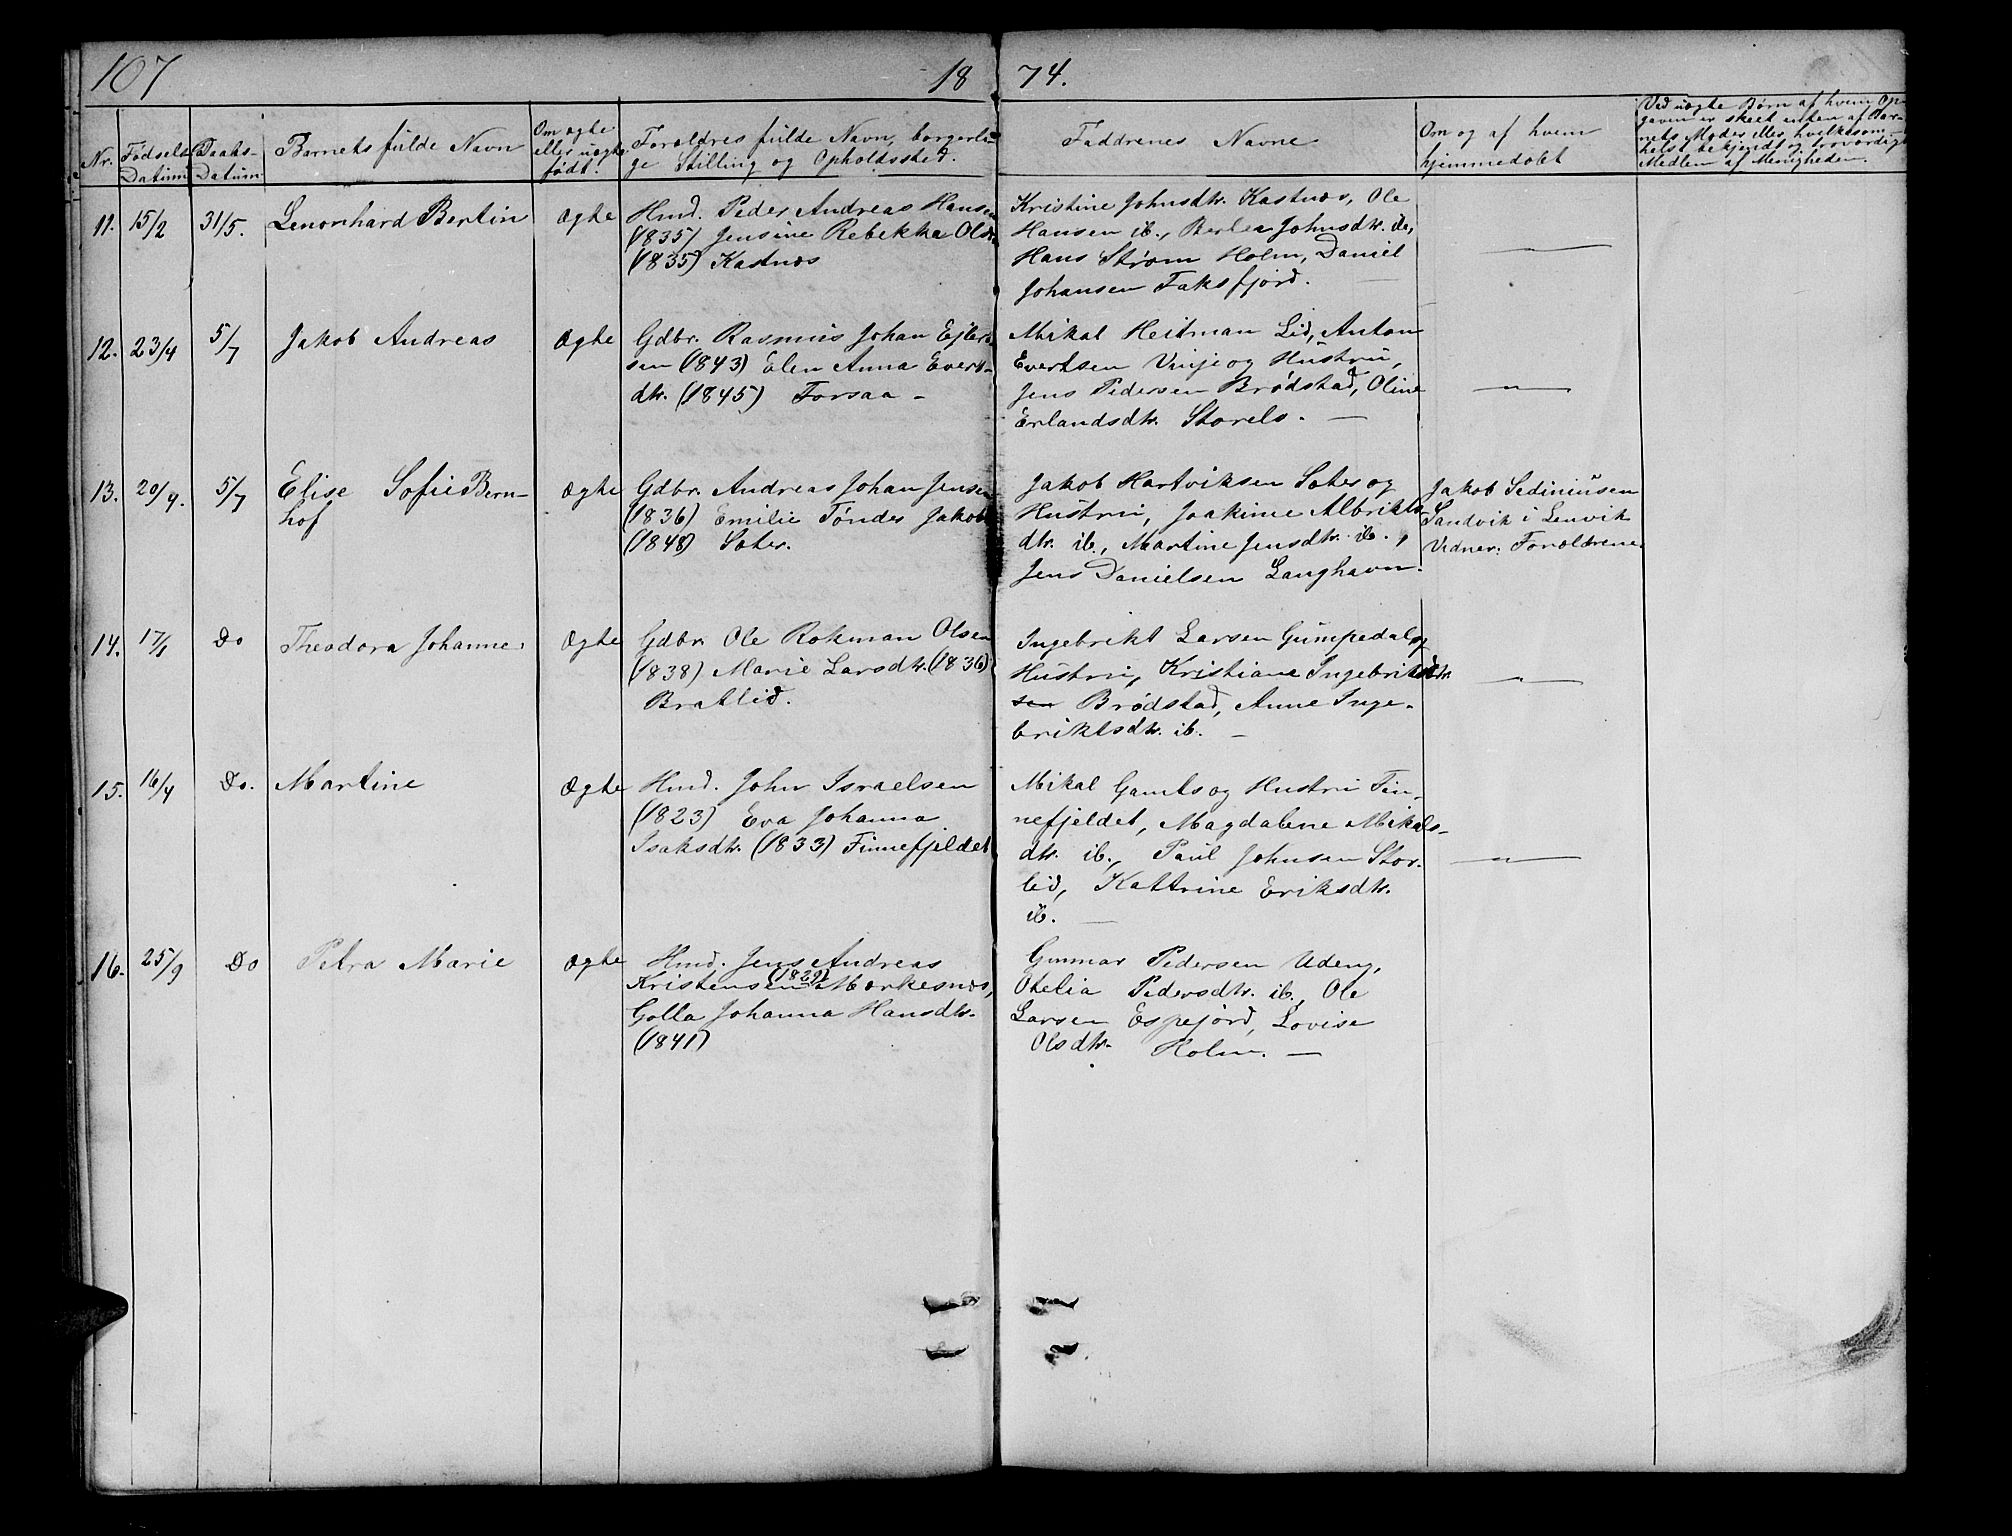 107
18 74.
Nr.
Fødsels Datum
Daabs- Datum
Barnets fulde Navn
Om ægte
eller uægte
født?
Forældres fulde Navn, borgerli-
ge Stilling og Opholdssted.
Faddrenes Navne
Om og af hvem
hjemmedøbt
Ved uægte Børn af hvem Op-
gaven er skeet enten af Bar-
nets Moder eller hvilketsom-
helst bekjendt og troværdigt
Medlem af Menigheden.
11. 15/2 31/5. Lenonhard Bertin ægte
Hmd. Peder Andreas Hansen
(1835) Jensine Rebekka Olsd
(1835) Kastnæs
Kristine Johnsdtr. Kastnæs, Ole
Hansen ib., Berlea Johnsdtr. ib,
Hans Strøm Holm, Daniel
Johansen Faksfjord.
12. 23/4 5/7 Jakob Andreas Ægte
Gdbr. Rasmus Johan Ejlert-
sen (1843) Elen Anna Everts-
dtr. (1845) Forsaa -
Mikal Heitman Lid, Anton
Evertsen Vinje og Hustru,
Jens Pedersen Brødstad, Oline
Erlandsdtr. Storels. —
— " —
13. 20/4. 5/7 Elise Sofie Bern-
hof
ægte
Gdbr. Andreas Johan Jensen
(1836) Emilie Tønder Jakobs
(1848) Sæter.
Jakob Hartviksen Sæter og
Hustru, Joakime Albrikts-
dtr. ib., Martine Jensdtr. ib.,
Jens Danielsen Langhavn.
Jakob Sediniusen
Sandvik i Lenvik
Vidner: Forældrene.
14. 17/1 Do Theodora Johanne Ægte
Gdbr. Ole Rokman Olsen
(1838) Marie Larsdtr. (1836)
Bratlid.
Ingebrikt Larsen Gumpedal og
Hustru, Kristiane Ingebriktsdtr.
sen Brødstad, Anne Inge-
briktsdtr. ib. —
— " —
15. 16/4 Do. Martine Ægte
Hmd. John Israelsen
(1823) Eva Johanna
Isaksdtr. (1833) Finnefjeldet
Mikal Gamts og Hustru Fin-
nefjeldet, Magdalene Mikals-
dtr. ib., Paul Johnsen Stor-
lid, Kattrine Eriksdtr.
ib. —
— " —
16. 25/9 Do Petra Marie ægte
Hmd. Jens Andreas
Kristensen (1829) Mærkesnæs,
Golla Johanna Hansdtr.
(1841)
Gunmar Pedersen Udeng,
Otelia Pedersdtr. ib., Ole
Larsen Espejord, Lovise
Olsdtr. Holm. —